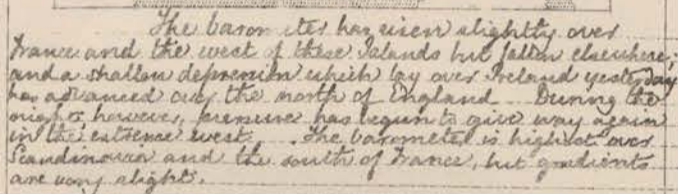 The barometer has risen slightly over
France and the west of these Islands but fallen elsewhere;
and a shallow depression which lay over Ireland yesterday
has advanced over the north of England. During the
night, however, pressure has begun to give way again
in the extreme west. The barometer is highest over
Scandinavia and the south of France, but gradients
are very slight.